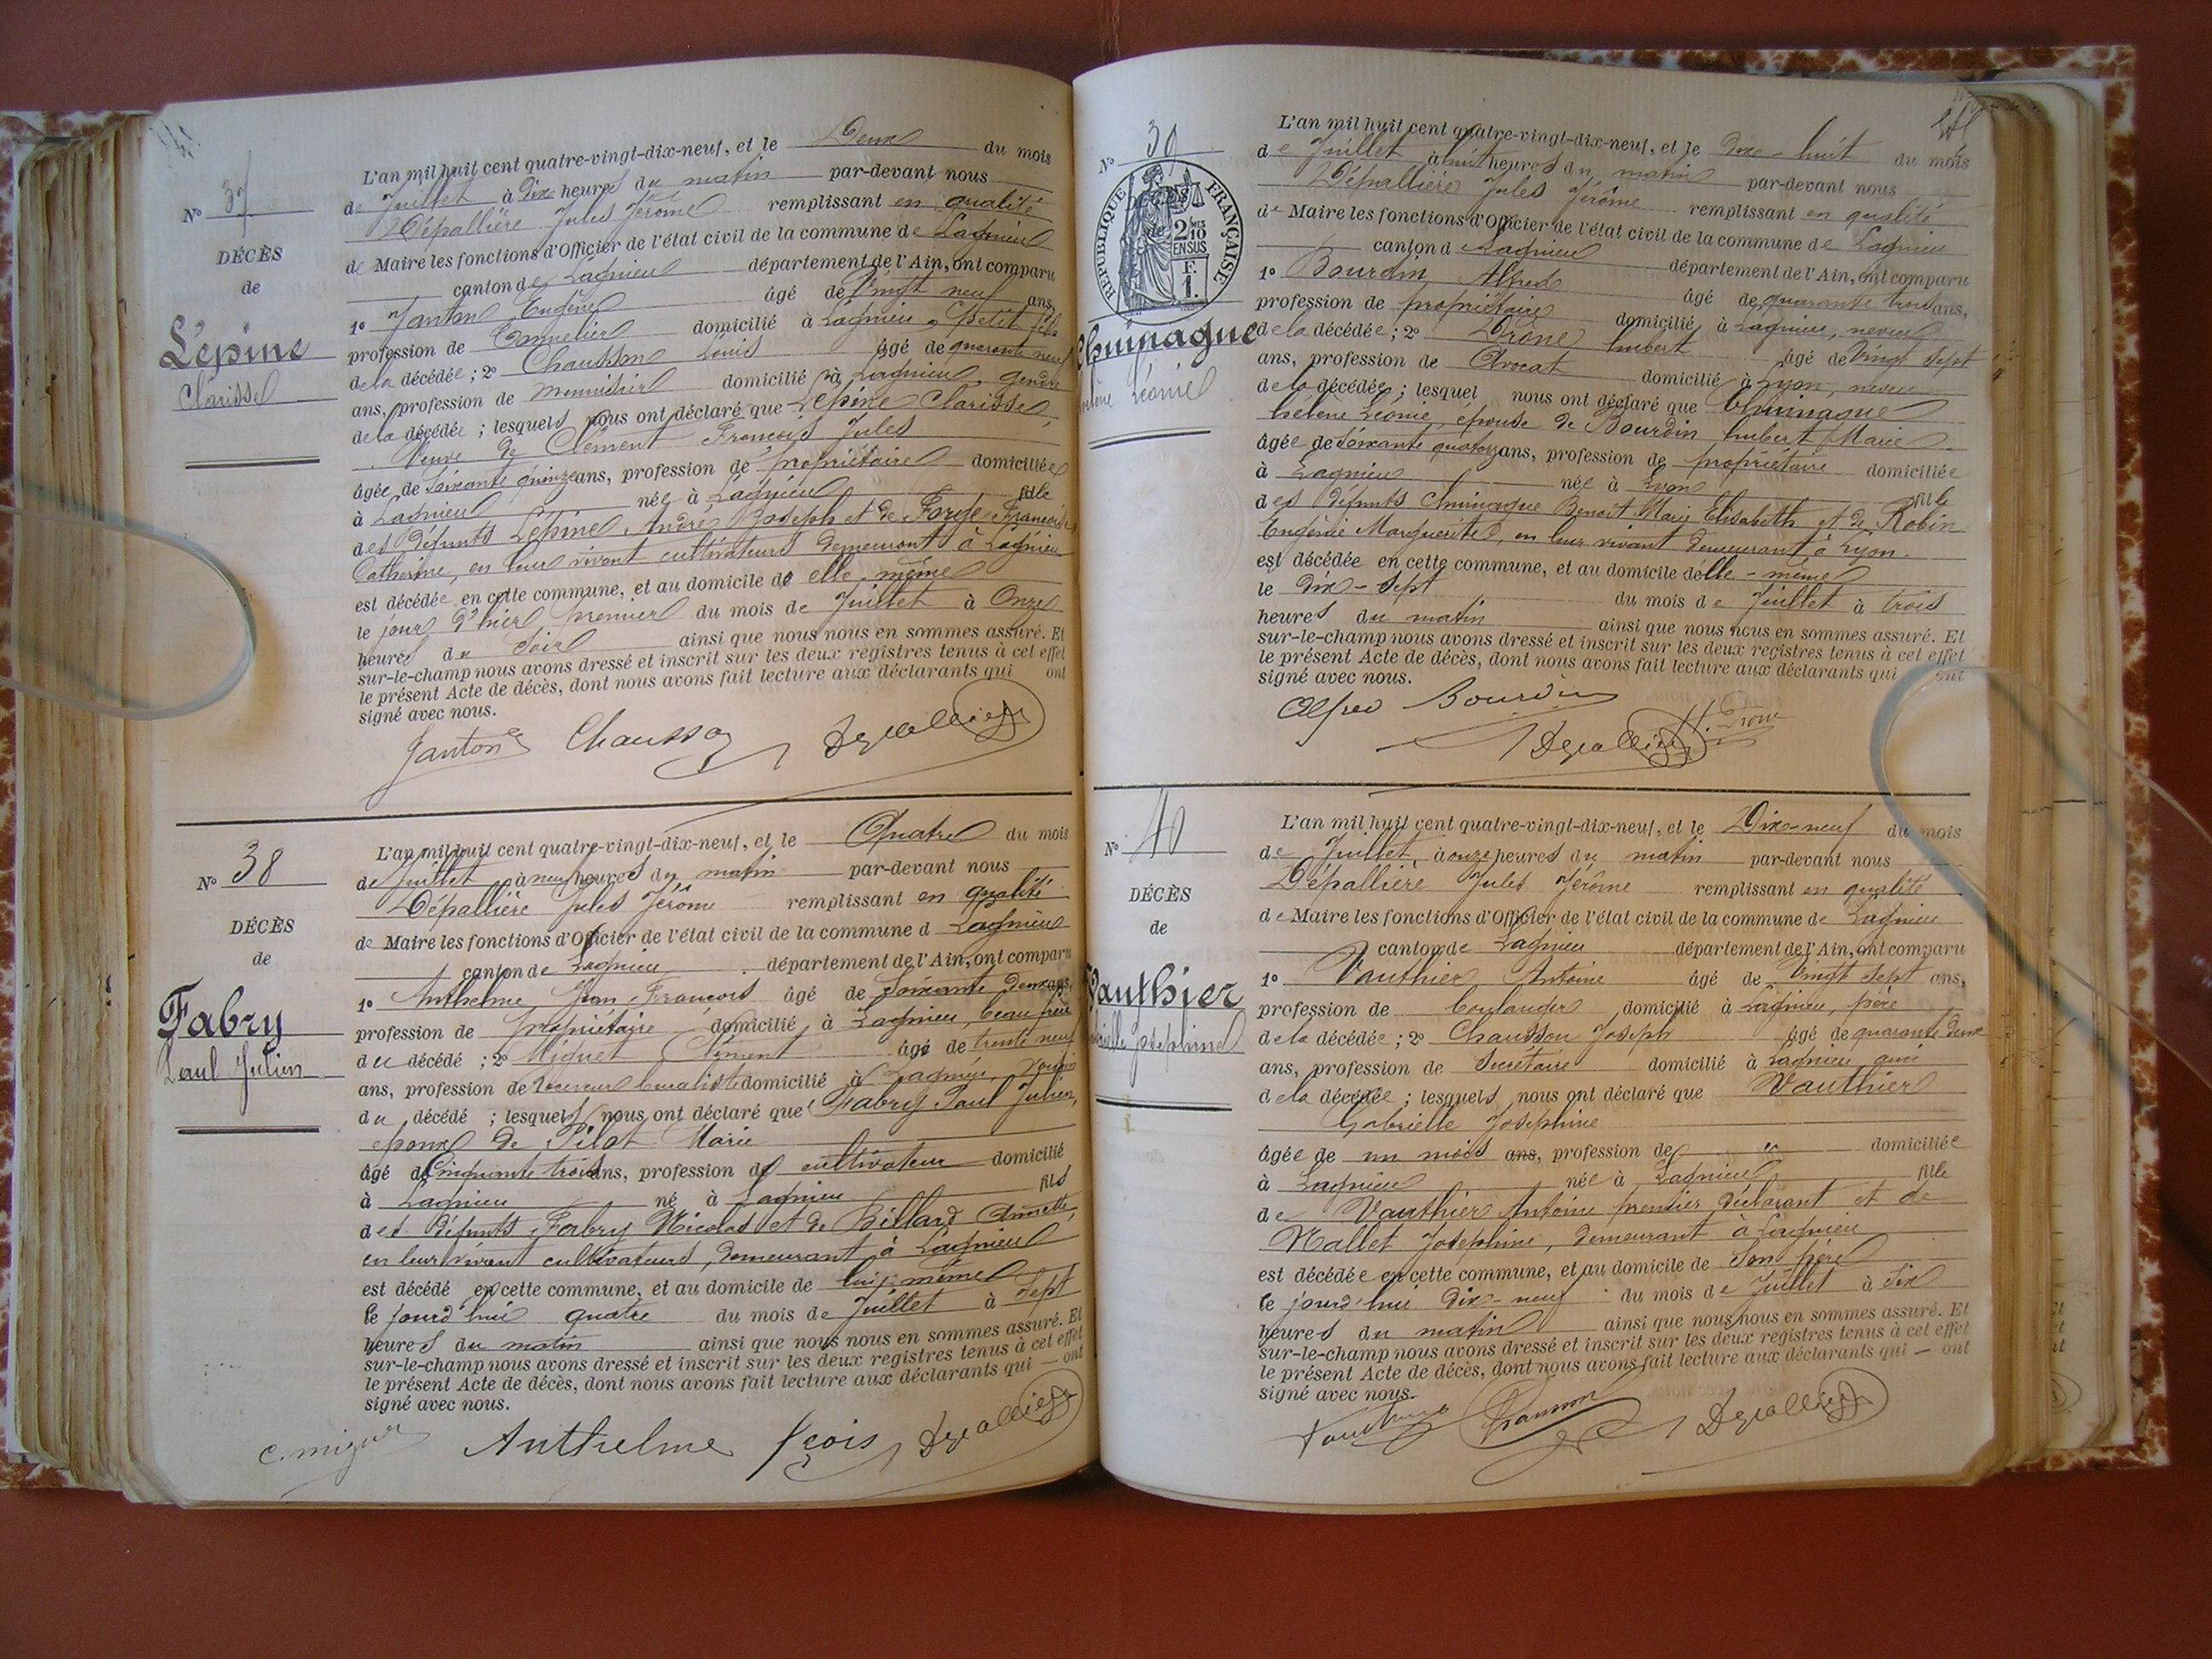 N° 37
DÉCÈS
de
Lépine
Clarisse
L'an mil huit cent quatre-vingt-dix-neuf, et le Deux du mois
de Juillet à Dix heures du matin par-devant nous
Dépallière Jules Jérôme remplissant en qualité
de Maire les fonctions d'Officier de l'état civil de la commune de Lagnieu
canton de Lagnieu département de l'Ain, ont comparu
1° Janton Eugène âgé de Vingt neuf ans,
profession de Tonnelier domicilié à Lagnieu, petit fils
de la décédée ; 2° Chausson Louis âgé de quarante neuf
ans, profession de menuisier domicilié à Lagnieu, gendre
de la décédée ; lesquels nous ont déclaré que Lépine Clarisse,
Veuve de Clément François Jules
âgée de Soixante quinze ans, profession de propriétaire domiciliée
à Lagnieu née à Lagnieu fille
des défunts Lépine André Joseph et de Forge Françoise
Catherine, en leur vivant cultivateurs demeurant à Lagnieu
est décédée en cette commune, et au domicile de elle même
le jour d'hier premier du mois de Juillet à Onze
heures du soir ainsi que nous nous en sommes assuré. Et
sur-le-champ nous avons dressé et inscrit sur les deux registres tenus à cet effet
le présent Acte de décès, dont nous avons fait lecture aux déclarants qui ont
signé avec nous.
Janton Chausson Depallière
N° 38
DÉCÈS
de
Fabry
Paul Julien
L'an mil huit cent quatre-vingt-dix-neuf, et le Quatre du mois
de Juillet à neuf heures du matin par-devant nous
Dépallière Jules Jérôme remplissant en qualité
de Maire les fonctions d'Officier de l'état civil de la commune d Lagnieu
canton de Lagnieu département de l'Ain, ont comparu
1° Anthelme Jean François âgé de Soixante deux ans,
profession de propriétaire domicilié à Lagnieu, beau frère
du décédé ; 2° Miguet Clément âgé de trente neuf
ans, profession de receveur buraliste domicilié à Lagnieu, voisin
du décédé ; lesquels nous ont déclaré que Fabry Paul Julien,
époux de Pilat Marie
âgé de Cinquante trois ans, profession de cultivateur domicilié
à Lagnieu né à Lagnieu fils
des défunts Fabry Nicolas et de Billard Annette,
en leur vivant cultivateurs, demeurant à Lagnieu
est décédé en cette commune, et au domicile de lui même
le jourd'hui quatre du mois de Juillet à Sept
heures du matin ainsi que nous nous en sommes assuré. Et
sur-le-champ nous avons dressé et inscrit sur les deux registres tenus à cet effet
le présent Acte de décès, dont nous avons fait lecture aux déclarants qui — ont
signé avec nous.
C. Miguet Anthelme fçois Depallière
N° 39
RÉPUBLIQUE FRANÇAISE
2 10MES
EN SUS
F.
1.
Chuinague
Hélène Léonie
L'an mil huit cent quatre-vingt-dix-neuf, et le Dix-huit du mois
de Juillet à huit heures du matin par-devant nous
Dépallière Jules Jérôme remplissant en qualité
de Maire les fonctions d'Officier de l'état civil de la commune de Lagnieu
canton d Lagnieu département de l'Ain, ont comparu
1° Bourdin Alfred âgé de quarante trois ans,
profession de propriétaire domicilié à Lagnieu, neveu
de la décédée ; 2° Drône Hubert âgé de Vingt Sept
ans, profession de Avocat domicilié à Lyon, neveu
de la décédée ; lesquel nous ont déclaré que Chuinague
hélène Léonie, épouse de Bourdin hubert Marie
âgée de Soixante quatorze ans, profession de propriétaire domiciliée
à Lagnieu née à Lyon fille
des défunts Chuinague Benoit Marie Elisabeth et de Robin
Eugénie Marguerite, en leur vivant demeurant à Lyon.
est décédée en cette commune, et au domicile d'elle-même
le Dix-Sept du mois de Juillet à trois
heures du matin ainsi que nous nous en sommes assuré. Et
sur-le-champ nous avons dressé et inscrit sur les deux registres tenus à cet effet
le présent Acte de décès, dont nous avons fait lecture aux déclarants qui ont
signé avec nous.
Alfred Bourdin
H. Drône
Depallière
N° 40
DÉCÈS
de
Vauthier
Gabrielle Joséphine
L'an mil huit cent quatre-vingt-dix-neuf, et le Dix-neuf du mois
de Juillet, à onze heures du matin par-devant nous
Dépallière Jules Jérôme remplissant en qualité
de Maire les fonctions d'Officier de l'état civil de la commune de Lagnieu
canton de Lagnieu département de l'Ain, ont comparu
1° Vauthier Antoine âgé de Vingt Sept ans,
profession de boulanger domicilié à Lagnieu, père
de la décédée ; 2° Chausson Joseph âgé de quarante deux
ans, profession de Secrétaire domicilié à Lagnieu ami
de la décédée ; lesquels nous ont déclaré que Vauthier
Gabrielle Joséphine
âgée de un mois ans, profession de domiciliée
à Lagnieu née à Lagnieu fille
de Vauthier Antoine premier déclarant et de
Mallet Joséphine, demeurant à Lagnieu
est décédée en cette commune, et au domicile de Son père
le jourd'hui Dix-neuf du mois de Juillet à Six
heures du matin ainsi que nous nous en sommes assuré. Et
sur-le-champ nous avons dressé et inscrit sur les deux registres tenus à cet effet
le présent Acte de décès, dont nous avons fait lecture aux déclarants qui — ont
signé avec nous.
Vauthier Chausson Depallière